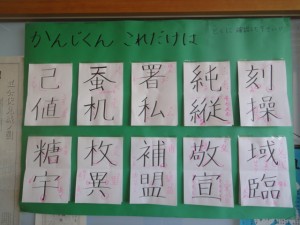 かんじくん これだけは
己 蚕 署 純 刻
値 机 私 縦 操
糖 枚 補 敬 域
宇 異 盟 宣 臨